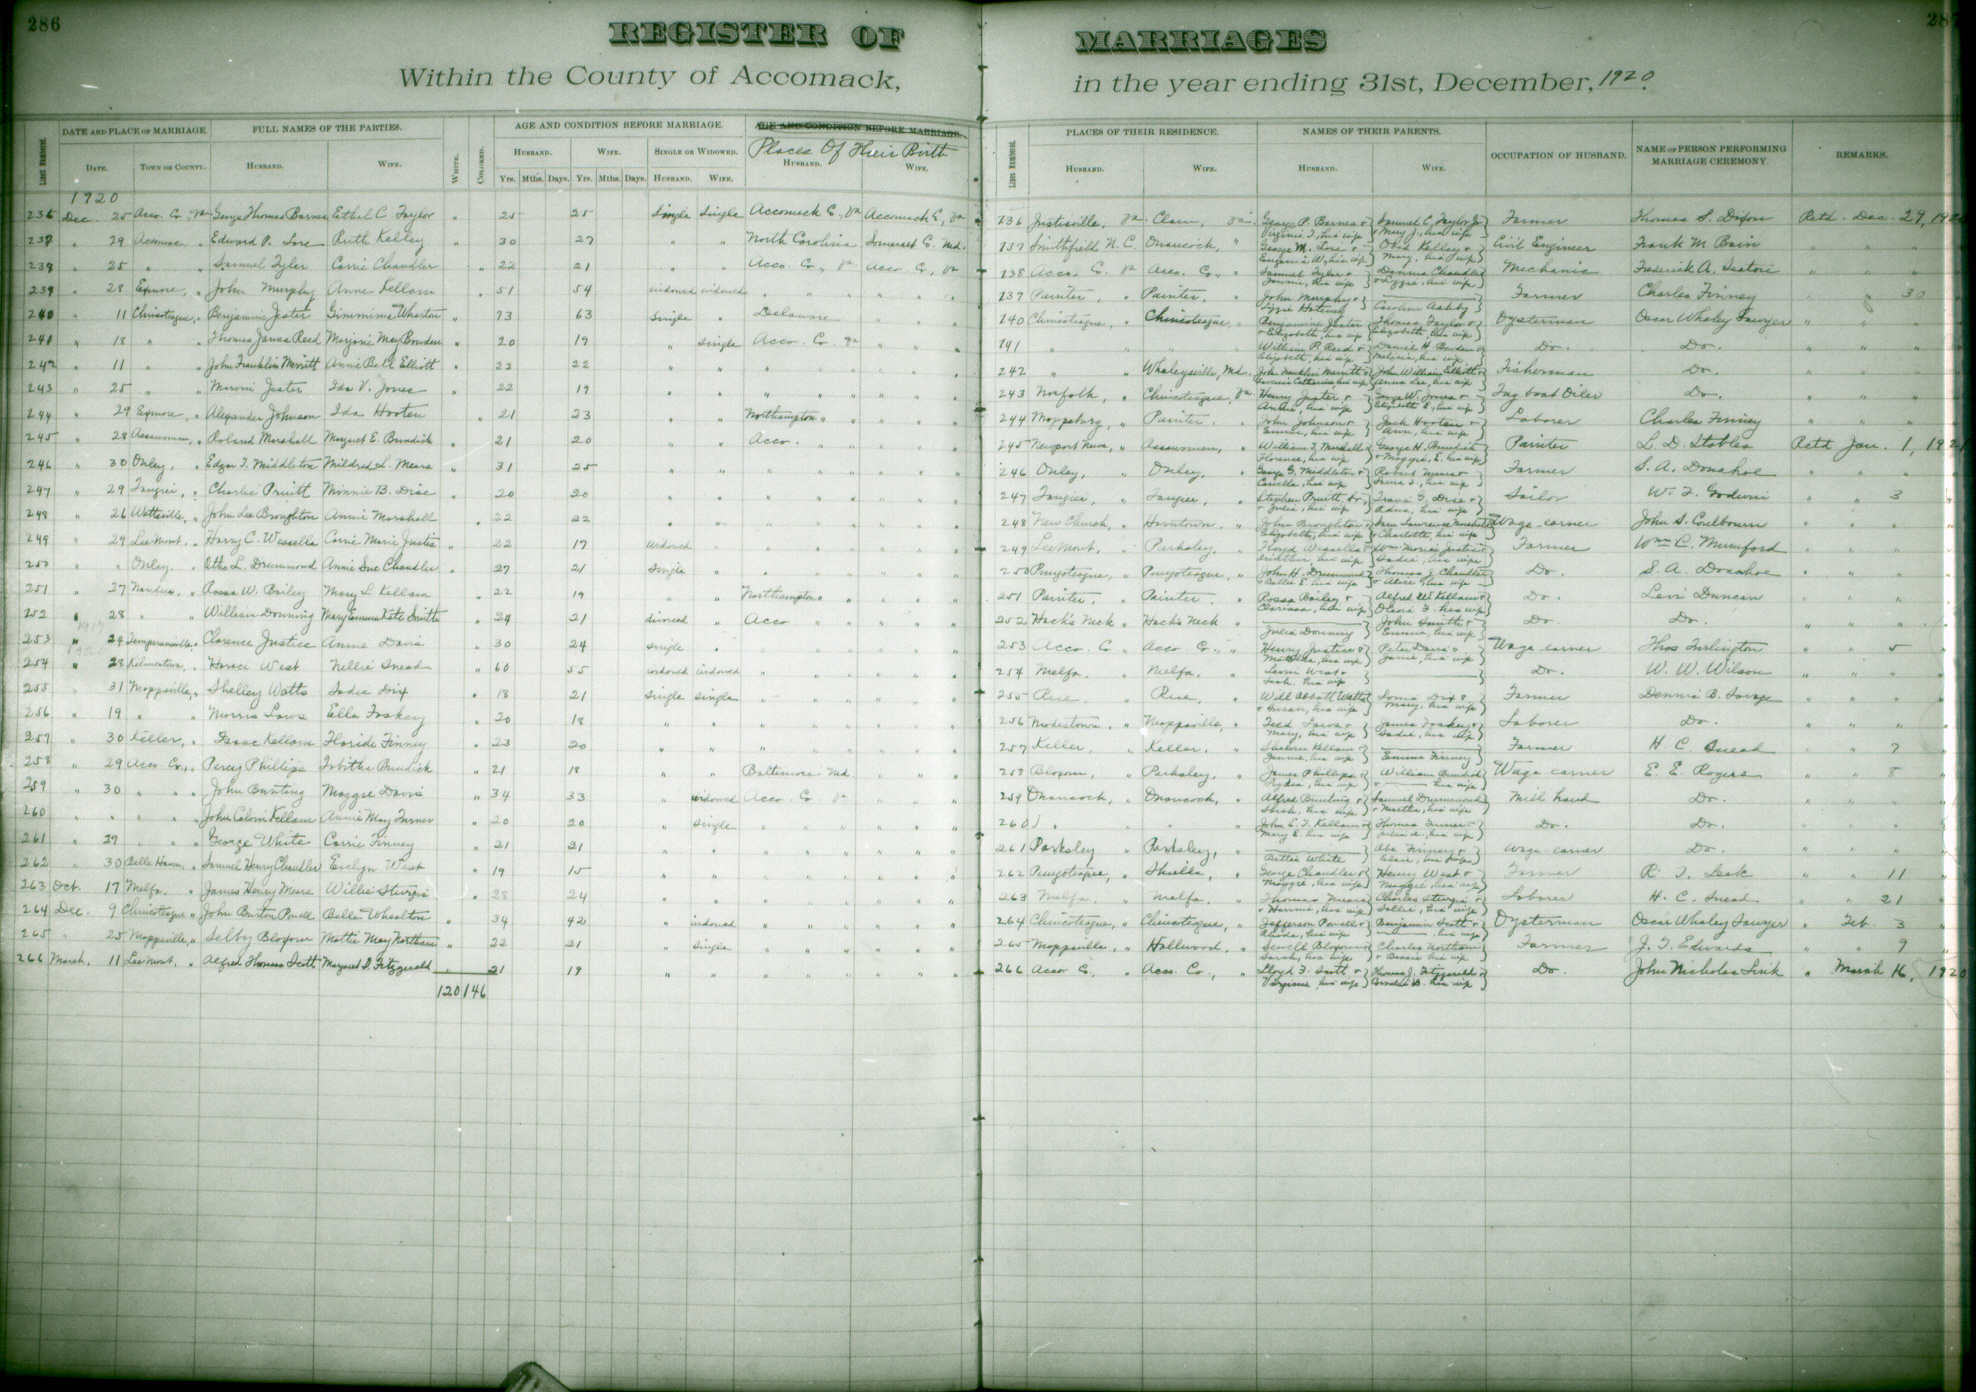 286
REGISTER OF MARRIAGES
287
Within the County of Accomack, in the year ending 31st, December, 1920.
Line Numbers. DATE AND PLACE OF MARRIAGE. FULL NAMES OF THE PARTIES. WHITE. COLORED. AGE AND CONDITION BEFORE MARRIAGE. AGE AND CONDITION BEFORE MARRIAGE. Places Of Their Birth
DATE. TOWN OR COUNTY. HUSBAND. WIFE. HUSBAND. WIFE. SINGLE OR WIDOWED. HUSBAND. WIFE.
Yrs. Mths. Days. Yrs. Mths. Days. HUSBAND. WIFE.
Line Numbers. PLACES OF THEIR RESIDENCE. NAMES OF THEIR PARENTS. OCCUPATION OF HUSBAND. NAME OF PERSON PERFORMING MARRIAGE CEREMONY. REMARKS.
HUSBAND. WIFE. HUSBAND. WIFE.
1920
236 Dec. 25 Acco. Co., Va George Thomas Barnes Ethel C. Taylor " 25 25 Single Single Accomack C., Va Accomack C., Va
237 " 29 Accomac, " Edward P. Lore Ruth Kelley " 30 27 " " North Carolina Somerset C. Md.
238 " 25 " " Samuel Tyler Carrie Chandler " 22 21 " " Acco. Co., Va Acco. Co., Va
239 " 28 Exmore, " John Murphy Anne Kellam " 51 54 widowed widowed " " " "
240 " 11 Chincoteague, " Benjamin Jester Gimmimie Wharton " 73 63 Single " Delaware " "
241 " 18 " " Thomas James Reed Marjorie May Bowden " 20 19 " Single Acco. Co. Va " "
242 " 11 " " John Franklin Merritt Annie Bell Elliott " 22 22 " " " " " "
243 " 25 " " Maroni Jester Ida V. Jones " 22 19 " " " " " "
244 " 29 Exmore, " Alexander Johnson Ida Hooten " 21 23 " " Northampton " " "
245 " 28 Assawoman, " Roland Marshall Margaret E. Bundick " 21 20 " " Acco. " " "
246 " 30 Onley, " Edgar T. Middleton Mildred L. Mears " 31 25 " " " " " "
247 " 29 Tangier, " Charlie Pruitt Minnie B. Dise " 20 20 " " " " " "
248 " 26 Wattsville, " John Lee Broughton Annie Marshall " 22 22 " " " " " "
249 " 29 Lee Mont, " Harry C. Wessells Carrie Marie Justis " 22 17 widowed " " " " "
250 " " Onley, " Otho L. Drummond Annie Sue Chandler " 27 21 Single " " " " "
251 " 27 Nandua, " Rossa W. Bailey Mary L. Kellam " 22 19 " " Northampton " " "
252 " 28 " " William Downing Mary Emma Kate Smith " 24 21 divorced " Acco " " "
253 " 24 Temperanceville, " Clarence Justice Annie Davis " 30 24 single " " " " "
254 " 28 " Horace West Nellie Snead " 60 55 widowed widowed " " " "
255 " 31 Mappsville, " Shelley Watts Sadie Dix " 18 21 Single single " " " "
256 " 19 " " Morris Laws Ella Foskey " 20 18 " " " " " "
257 " 30 Keller, " Isaac Kellam Floride Finney " 23 20 " " " " " "
258 " 29 Acco. Co., " Percy Phillips Tabitha Bundick " 21 18 " " Baltimore Md " "
259 " 30 " " John Bunting Maggie Davis " 34 33 " widowed Acco. Co. Va " "
260 " " " " John Colonie Kellam Annie May Turner " 20 20 " Single " " " "
261 " 29 " " George White Carrie Finney " 21 21 " " " " " "
262 " 30 Belle Haven, " Samuel Henry Chandler Evelyn West " 19 15 " " " " " "
263 Oct. 17 Melfa, " James Henry Mears Willie Sturgis " 28 24 " " " " " "
264 Dec. 9 Chincoteague " John Burton Powell Bella Whealton " 34 42 " widowed " " " "
265 " 25 Mappsville, " Selby Bloxom Mattie May Northam " 22 21 " Single " " " "
266 March. 11 Lee Mont, " Alfred Thomas Scott Margaret D. Fitzgerald " 21 19 " " " " " "
120 146
236 Justisville, Va. Clam, Va. George P. Barnes & Virginia T., his wife Samuel C. Taylor Jr. & Mary J., his wife Farmer Thomas S. Dixon Retd. Dec. 29, 1920
237 Smithfield N. C. Onancock, " George M. Lore & Eugenia W., his wife Obed Kelley & Mary, his wife Civil Engineer Frank M. Bain " " "
238 Acco. C. Va Acco. Co., " Samuel Tyler & Fannie, his wife Dennis Chandler & Lizzie, his wife Mechanic Frederick A. " " "
239 Painter, " Painter. " John Murphy & Caroline Ashby Farmer Charles Finney " " 30
240 Chincoteague, " Chincoteague, " Benjamin Jester & Elizabeth, his wife Thomas Taylor & Elizabeth, his wife Oysterman Oscar Whaley Sawyer " " "
241 " " " " William P. Reed & Elizabeth, his wife Daniel H. Bowden & Melissa, his wife Do. Do. " " "
242 " " Whaleysville, Md. John Franklin Merritt & Catherine, his wife John William Elliott & Anna Lee, his wife Fisherman Do. " " "
243 Norfolk, " Chincoteague, Va. Henry Jester & Annie, his wife George W. Jones & Elizabeth E., his wife Tug boat Oiler Do. " " "
244 Mappsburg, " Painter. " John Johnson & Emma, his wife Jack Hooten & Ann, his wife Laborer Charles Finney " " "
245 Newport News, " Assawoman, " William T. Marshall & Florence, his wife George H. Bundick & Maggie E. his wife Painter L. D. Stables Retd Jan. 1, 1921
246 Onley, " Onley, " George G. Middleton & his wife Robert Mears & his wife Farmer S. A. Donahoe " " "
247 Tangier, " Tangier, " Stephen Pruitt Sr. & Julia, his wife Travis T. Dise & Edna, his wife Sailor W. F. Godwin " " 3
248 New Church, " Horntown, " John Broughton & Elizabeth, his wife Lawrence Marshall & Charlotte, his wife Wage earner John S. Coulbourn " " "
249 Lee Mont, " Parksley, " Floyd Wessells & his wife Wm Morris Justis & Sadie, his wife Farmer Wm C. Mumford " " "
250 Pungoteague, " Pungoteague, " John H. Drummond & Belle E. his wife Thomas J. Chandler & Alice, his wife Do. S. A. Donahoe " " "
251 Painter, " Painter. " Rossa Bailey & Clarissa, his wife Alfred W. Kellam & his wife Do. Levi Duncan " " "
252 Hack's Neck " Hack's Neck " Julia Downing John Smith & Emma, his wife Do. Do. " " "
253 Acco. C. " Acco. C., " Henry Justice & Matilda, his wife Peter Davis & Janie, his wife Wage earner Thos Furlington " " 5
254 Melfa. " Melfa, " West & Leah, his wife Do. W. W. Wilson " " "
255 Rue, " Rue, " Will Abbott Watts & Susan, his wife Dix & Mary, his wife Farmer Dennis B. Savage " " "
256 Modestown, " Mappsville, " Teed Laws & Mary, his wife James Foskey & Sadie, his wife Laborer Do. " " "
257 Keller, " Keller. " Kellam & Jennie, his wife Emma Finney Farmer H. C. Snead " " 7
258 Bloxom, " Parksley, " James Phillips & Lydia, his wife William Bundick & his wife Wage earner E. E. Rogers " " 8
259 Onancock, " Onancock, " Alfred Bunting & Sarah, his wife Samuel Drummond & Martha, his wife Mill hand Do. " " "
260 " " " " John E. T. Kellam & Mary E. his wife Thomas Turner & Julia A., his wife Do. Do. " " "
261 Parksley " Parksley, " Bettie White Abe Finney & his wife Wage earner Do. " " "
262 Pungoteague, " Shields, " George Chandler & Maggie, his wife Henry West & Maggie, his wife Farmer R. T. Leak " " 11
263 Melfa " Melfa. " Thomas Mears & Hennie, his wife Charles Sturgis & Sallie, his wife Laborer H. C. Snead " " 21
264 Chincoteague, " Chincoteague, " Jefferson Powell & his wife Benjamin Scott & his wife Oysterman Oscar Whaley Sawyer " Feb. 3
265 Mappsville, " Hallwood, " Sewell Bloxom & Sarah, his wife Charles Northam & Bessie his wife Farmer J. T. Edwards " " 9
266 Acco C., " Acco. Co., " Lloyd F. Scott & Virginia his wife Thomas J. Fitzgerald & his wife Do. John Nicholas Link " March 16, 1920